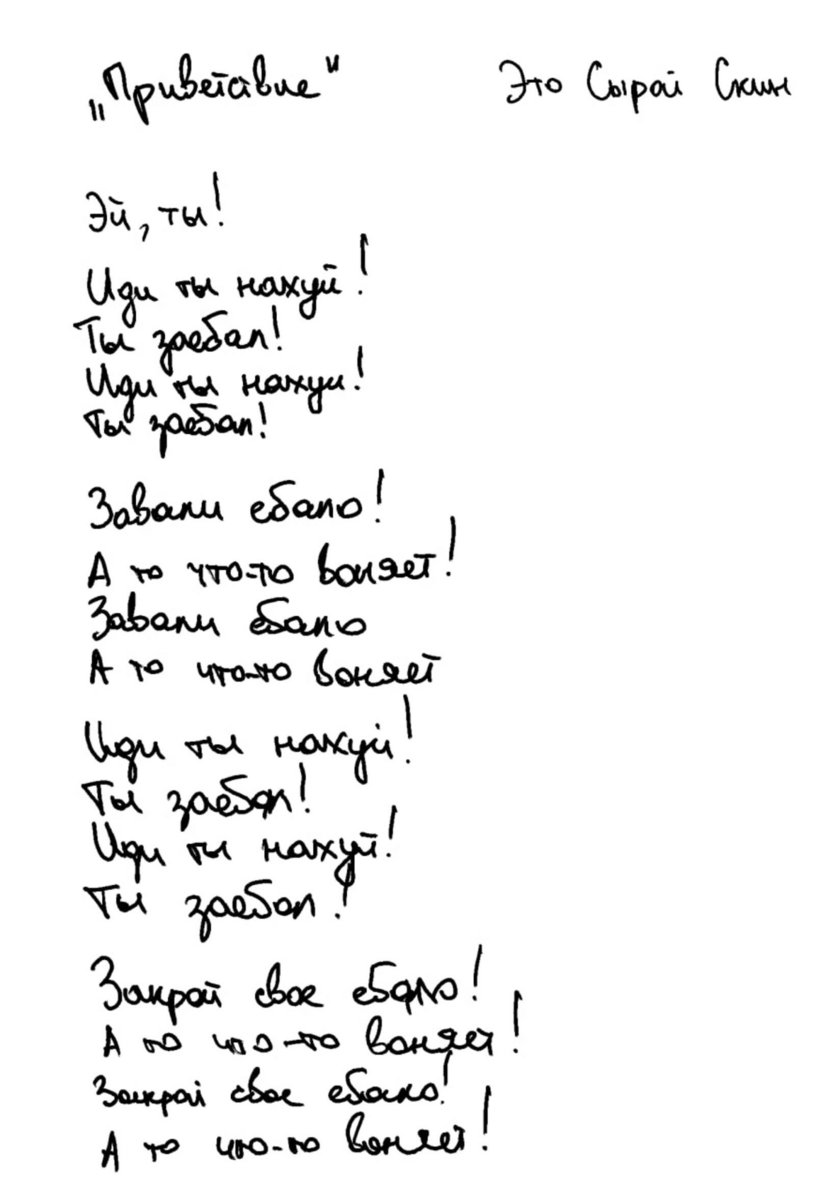 „Приветствие" Это Сырой Скин
Эй, ты!
Иди ты нахуй!
Ты заебал!
Иди ты нахуй!
Ты заебал!
Завали ебало!
А то что-то воняет!
Завали ебало
А то что-то воняет
Иди ты нахуй!
Ты заебал!
Иди ты нахуй!
Ты заебал!
Закрой свое ебало!
А то что-то воняет!
Закрой свое ебало!
А то что-то воняет!